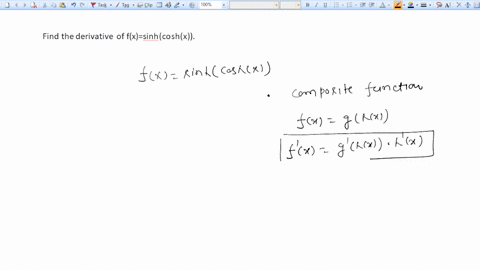 Find the derivative of f(x)=sinh(cosh(x)).
f(x) = sinh(cosh(x))
composite function
f(x) = g(h(x))
f'(x) = g'(h(x)) · h'(x)